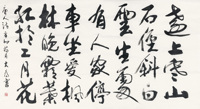 遠上寒山
石徑斜白
雲生處
有人家停
車坐愛楓
林晚霜葉
紅於二月花